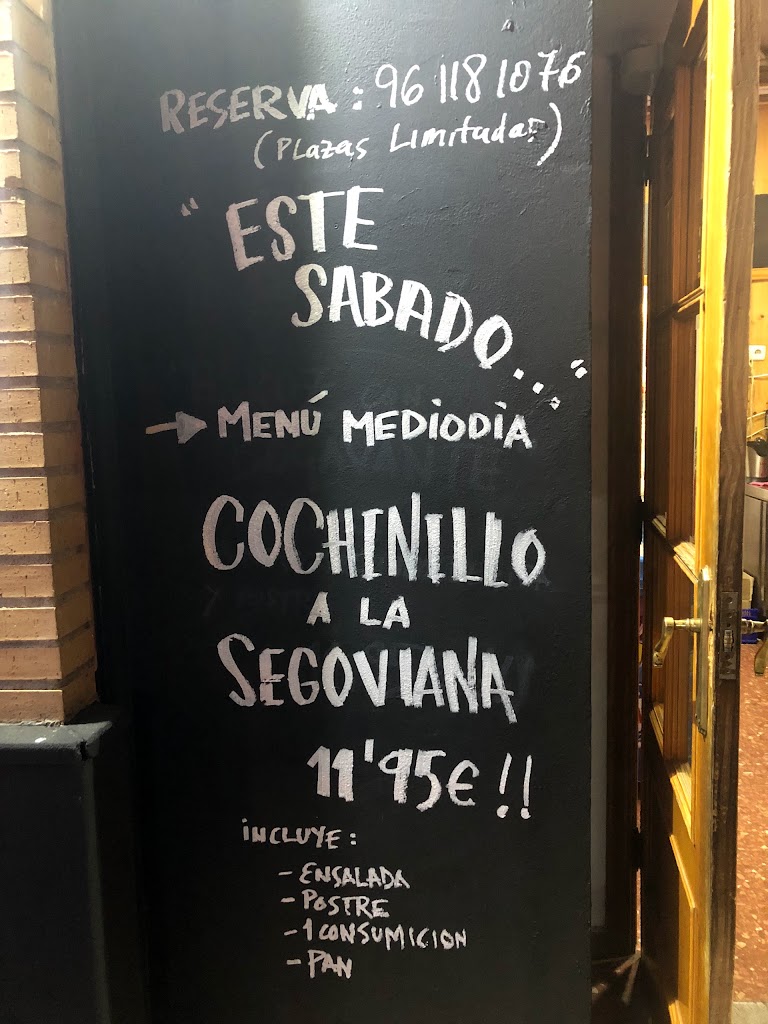 RESERVA : 96 118 1076
(PLazas Limitadas)
"ESTE
SABADO..."
→ MENÚ MEDIODIA
COCHINILLO
A LA
SEGOVIANA
11'95€!!
INCLUYE:
- ENSALADA
- POSTRE
- 1 CONSUMICION
- PAN